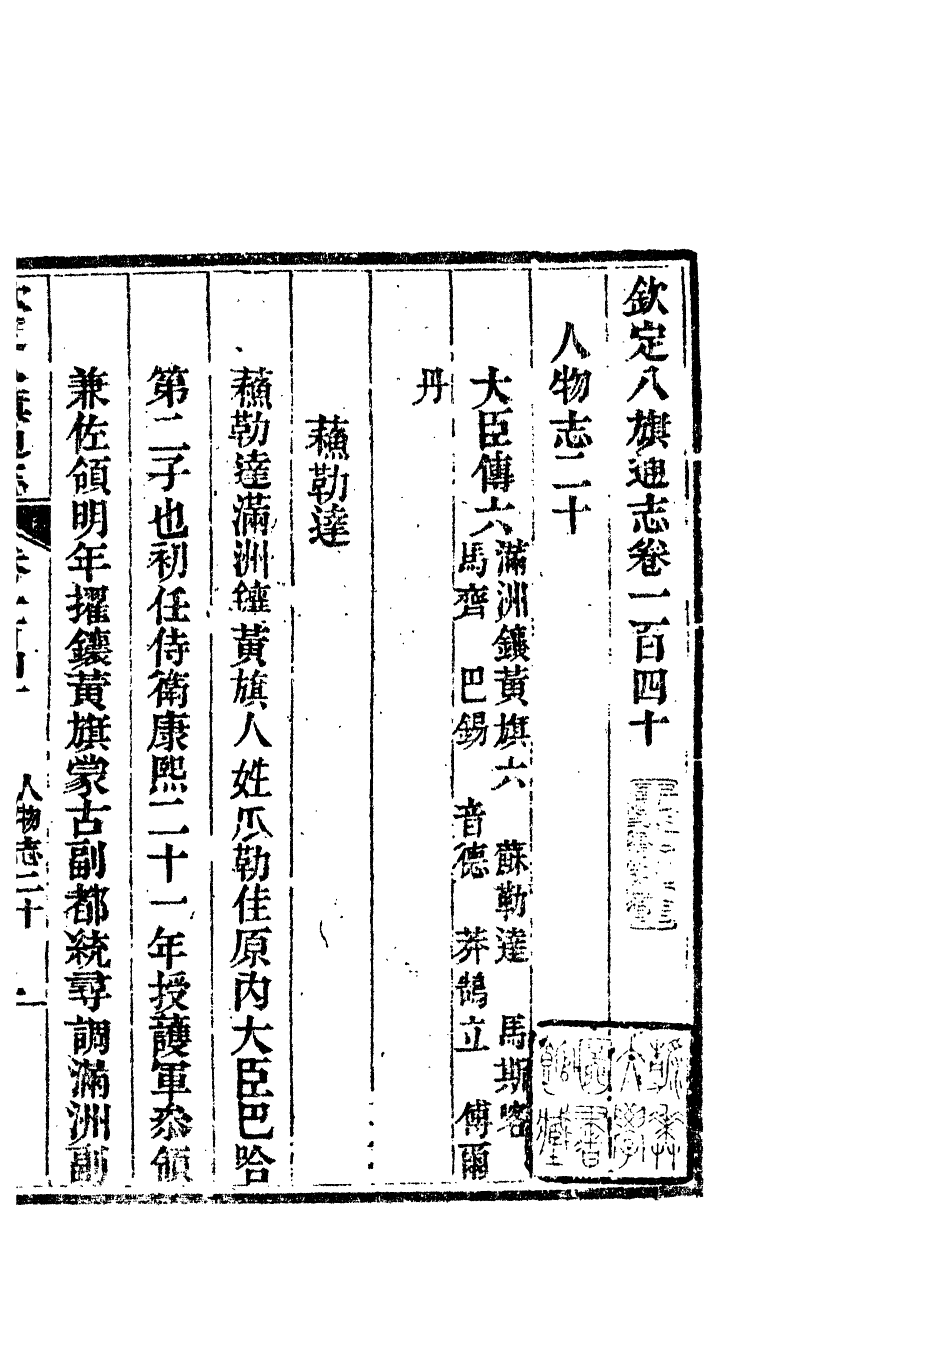 欽定八旗通志卷一百四十
人物志二十
大臣傳六滿洲鑲黃旗六 蘇勒達 馬斯喀
馬齊 巴錫 音德 莽鵠立 傅爾
丹
蘓勒達
蘓勒達滿洲鑲黃旗人姓爪勒佳原內大臣巴哈
第二子也初任侍衛康熙二十一年授護軍叅領
兼佐領明年擢鑲黃旗蒙古副都統尋調滿洲副
人物志二十 一